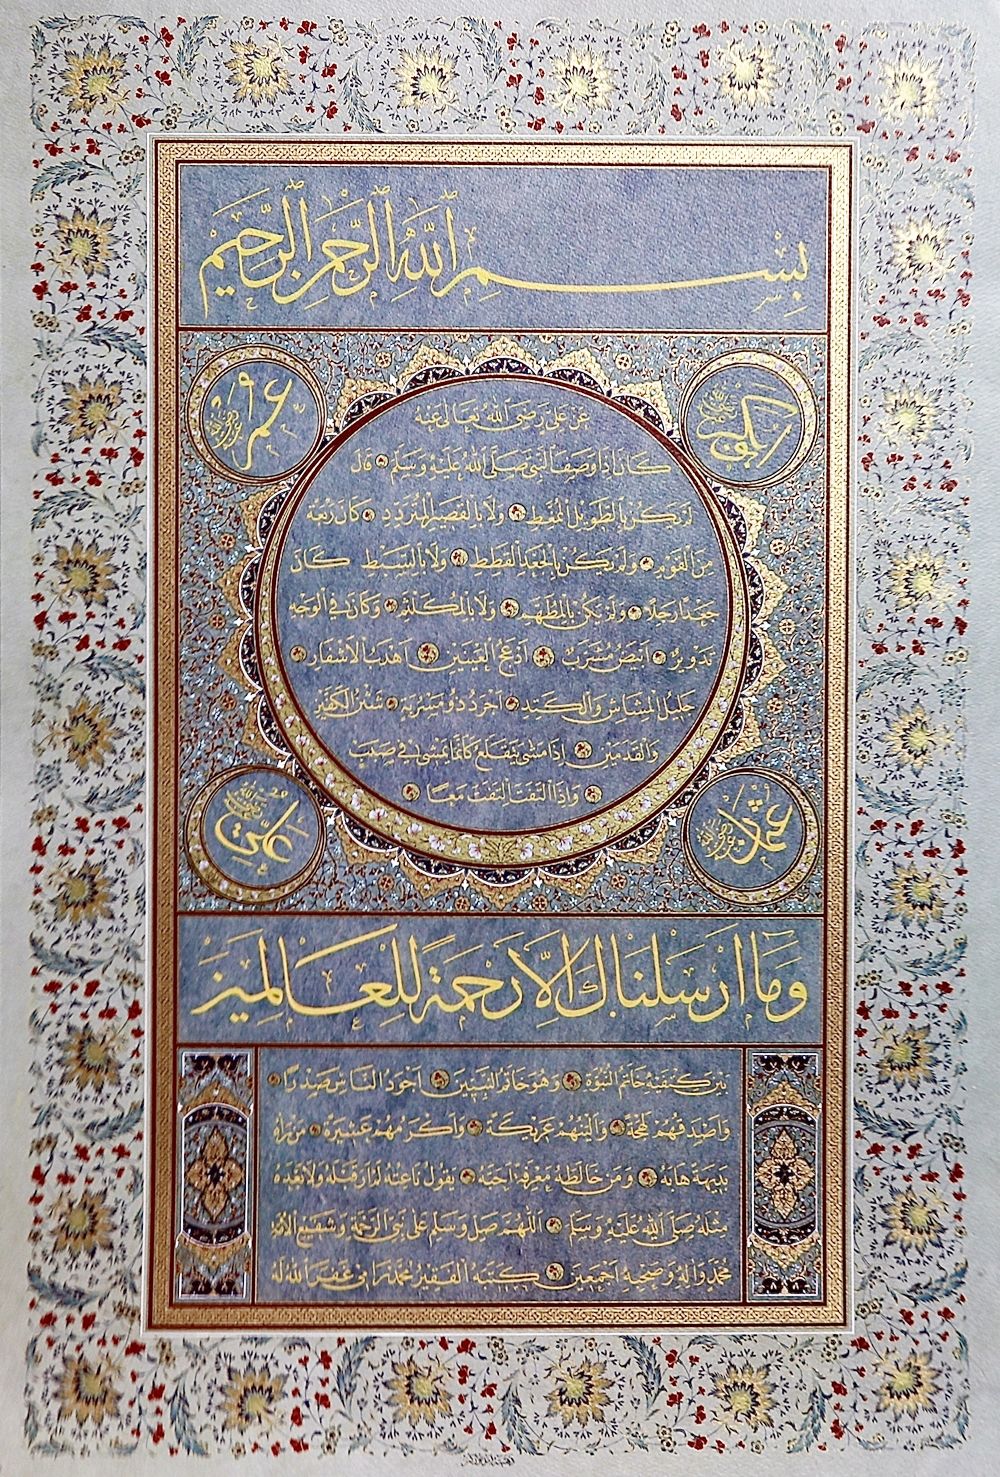 بِسْمِ اللّٰهِ الرَّحْمٰنِ الرَّحِيمِ
ابوبكر رضي الله عنه
عمر رضي الله عنه
عَنْ عَلِيٍّ رَضِيَ اللّٰهُ تَعَالٰى عَنْهُ
كَانَ إِذَا وَصَفَ النَّبِيَّ صَلَّى اللّٰهُ عَلَيْهِ وَسَلَّمَ قَالَ
لَمْ يَكُنْ بِالطَّوِيلِ الْمُمَّغِطِ وَلَا بِالْقَصِيرِ الْمُتَرَدِّدِ وَكَانَ رَبْعَةً
مِنَ الْقَوْمِ وَلَمْ يَكُنْ بِالْجَعْدِ الْقَطَطِ وَلَا بِالسَّبِطِ كَانَ
جَعْدًا رَجِلًا وَلَمْ يَكُنْ بِالْمُطَهَّمِ وَلَا بِالْمُكَلْثَمِ وَكَانَ فِي الْوَجْهِ
تَدْوِيرٌ أَبْيَضُ مُشْرَبٌ أَدْعَجُ الْعَيْنَيْنِ أَهْدَبُ الْأَشْفَارِ
جَلِيلُ الْمُشَاشِ وَالْكَتَدِ أَجْرَدُ ذُو مَسْرُبَةٍ شَثْنُ الْكَفَّيْنِ
وَالْقَدَمَيْنِ إِذَا مَشٰى يَتَقَلَّعُ كَأَنَّمَا يَمْشِي فِي صَبَبٍ
وَإِذَا الْتَفَتَ الْتَفَتَ مَعًا
عثمان رضي الله عنه
علي رضي الله عنه
وَمَا اَرْسَلْنَاكَ اِلَّا رَحْمَةً لِلْعَالَمِينَ
بَيْنَ كَتِفَيْهِ خَاتَمُ النُّبُوَّةِ وَهُوَ خَاتَمُ النَّبِيِّينَ أَجْوَدُ النَّاسِ صَدْرًا
وَأَصْدَقُهُمْ لَهْجَةً وَأَلْيَنُهُمْ عَرِيكَةً وَأَكْرَمُهُمْ عَشِيرَةً مَنْ رَآهُ
بَدِيهَةً هَابَهُ وَمَنْ خَالَطَهُ مَعْرِفَةً أَحَبَّهُ يَقُولُ نَاعِتُهُ لَمْ أَرَ قَبْلَهُ وَلَا بَعْدَهُ
مِثْلَهُ صَلَّى اللّٰهُ عَلَيْهِ وَسَلَّمَ اَللّٰهُمَّ صَلِّ وَسَلِّمْ عَلٰى نَبِيِّ الرَّحْمَةِ وَشَفِيعِ الْأُمَّةِ
مُحَمَّدٍ وَآلِهِ وَصَحْبِهِ أَجْمَعِينَ كَتَبَهُ الْفَقِيرُ مُحَمَّد غَفَرَ اللّٰهُ لَهُ